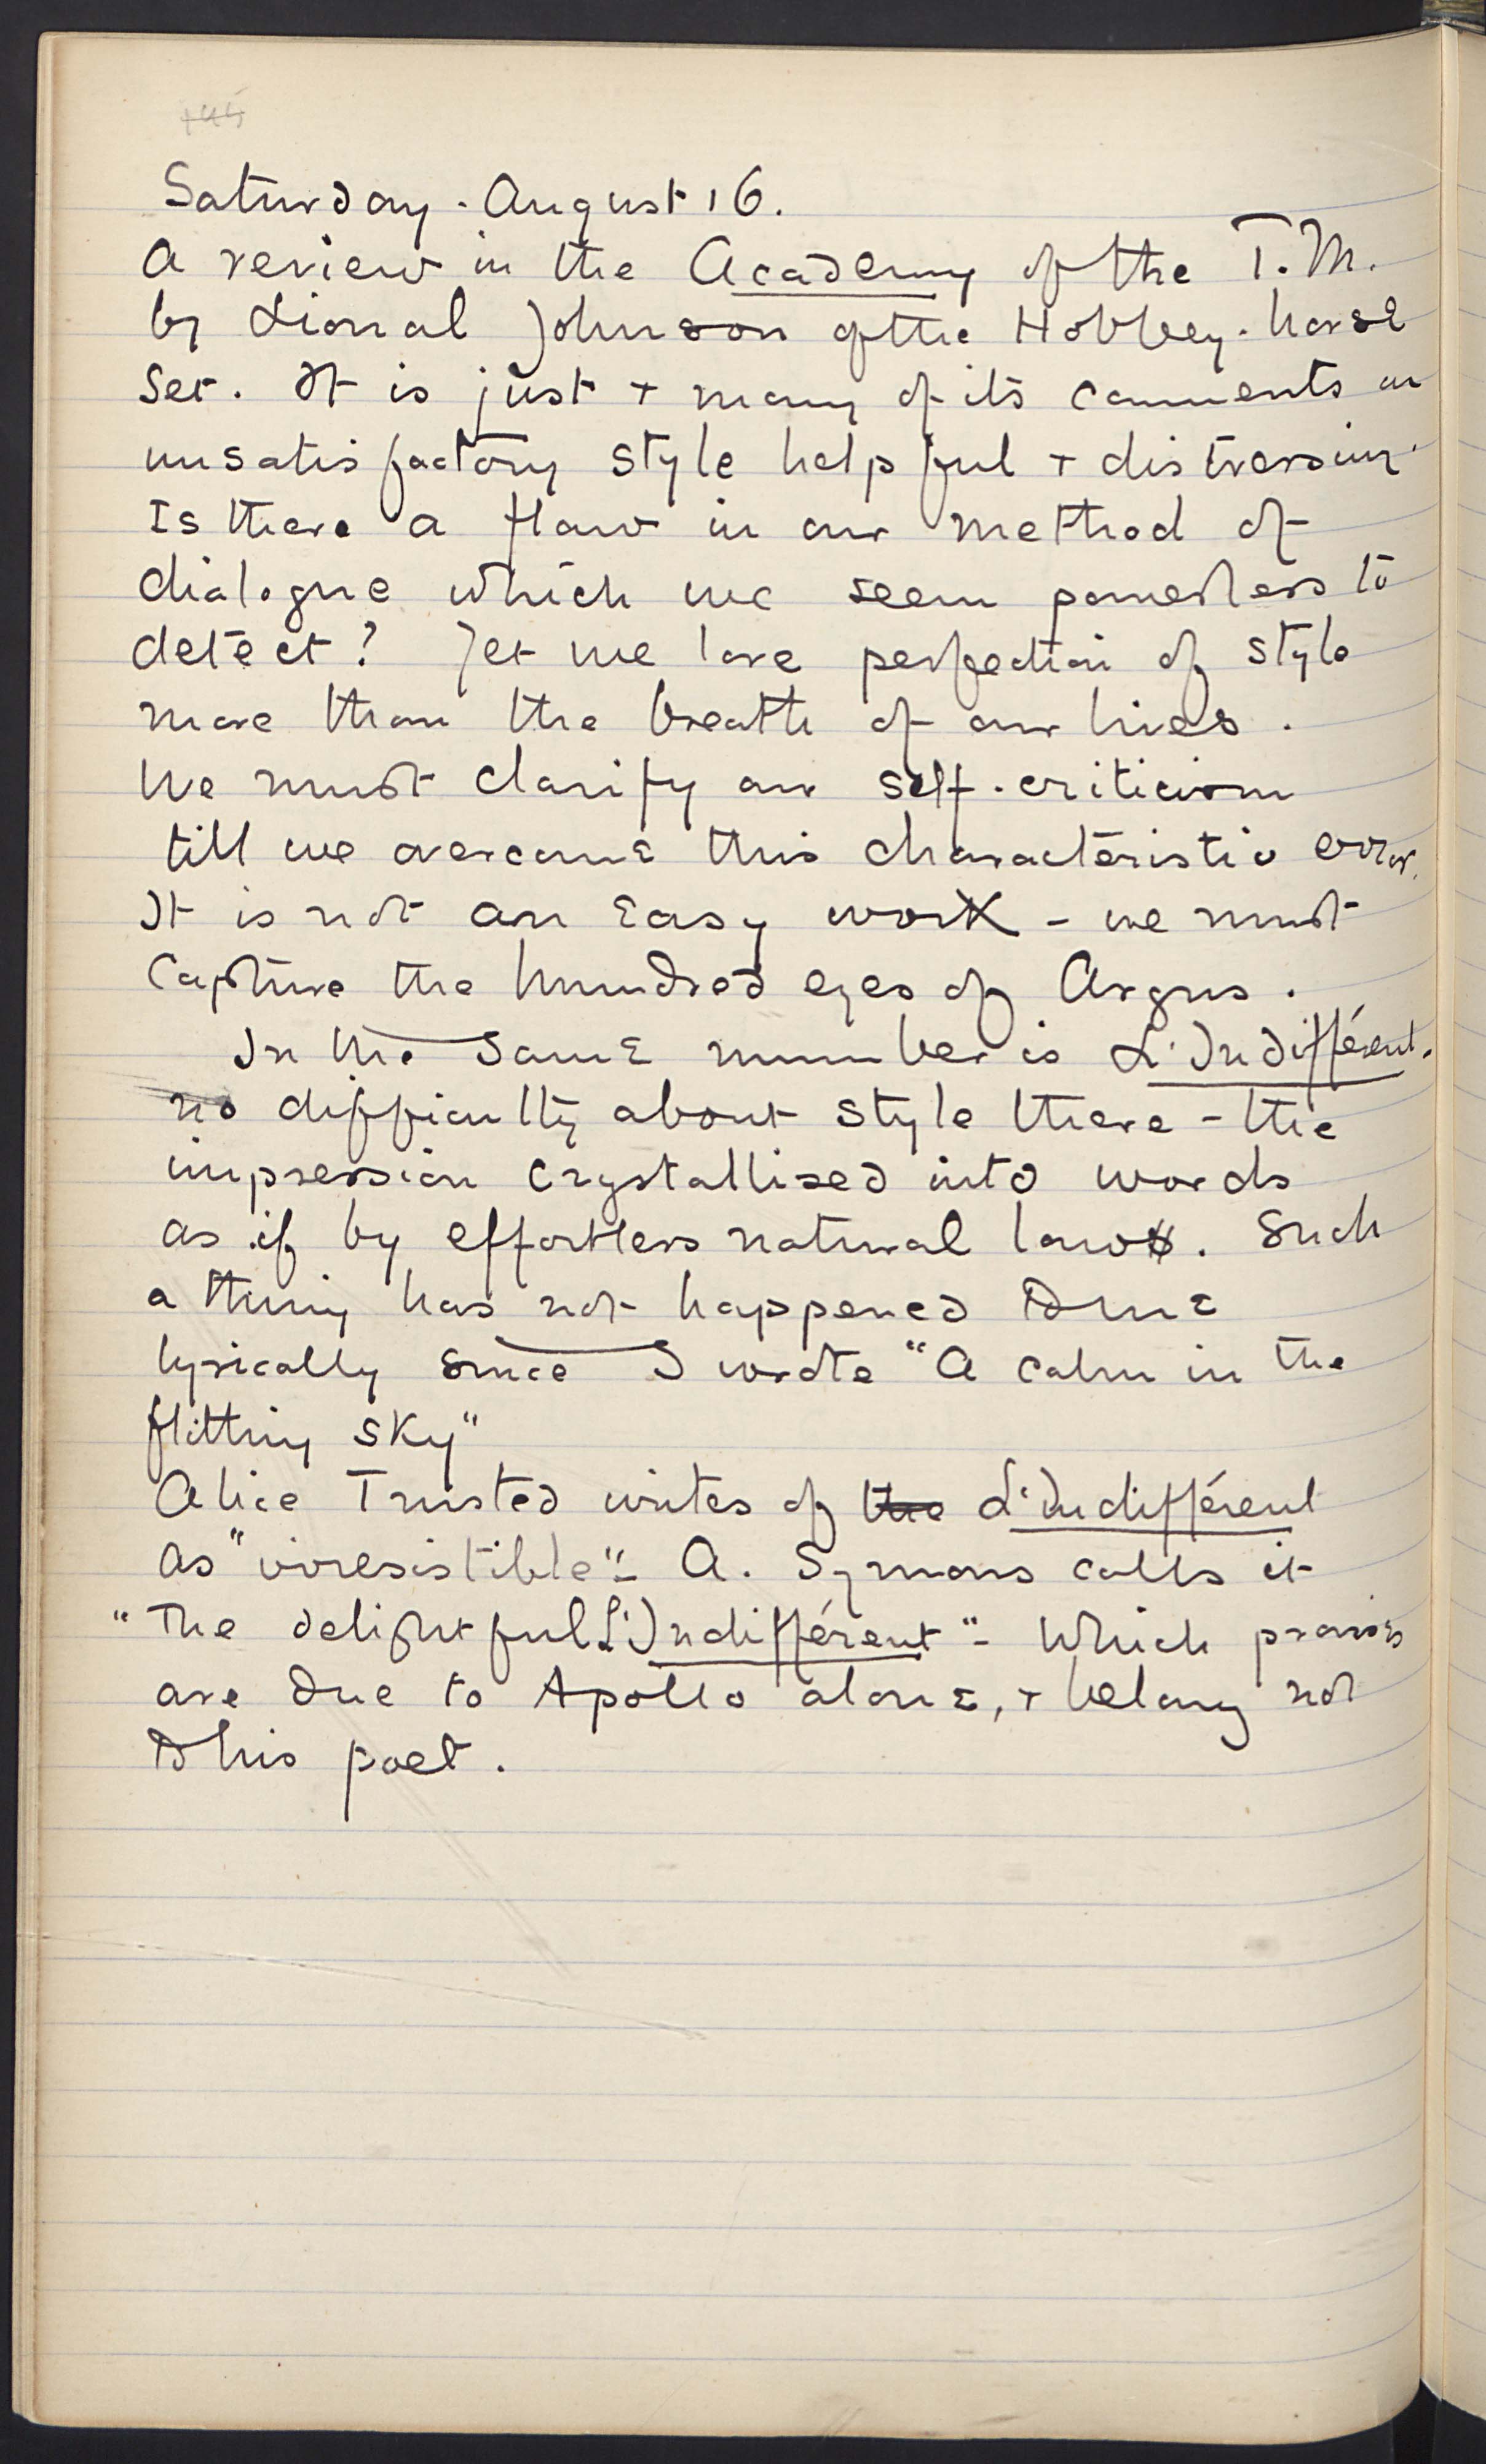 Saturday. August 16.
A review in the Academy of the T. M.
by Lional Johnson of the Hobbey-horse
Set. It is just + many of its comments on
unsatisfactory style helpful + distressing.
Is there a flaw in our method of
dialogue which we seem powerless to
detect? Yet we love perfection of style
more than the breath of our lives.
We must clarify our self-criticism
till we overcome this characteristic error.
It is not an easy work - we must
capture the hundred eyes of Argus.
In the same number is L'Indifférent.
no difficulty about style there - the
impression crystallised into words
as if by effortless natural laws. Such
a thing has not happened to me
lyrically since I wrote "A calm in the
flitting sky"
Alice Trusted writes of the L'Indifférent
as "irresistible" - A. Symons calls it
"The delightful L'Indifférent" - Which praises
are due to Apollo alone, + belong not
to his poet.